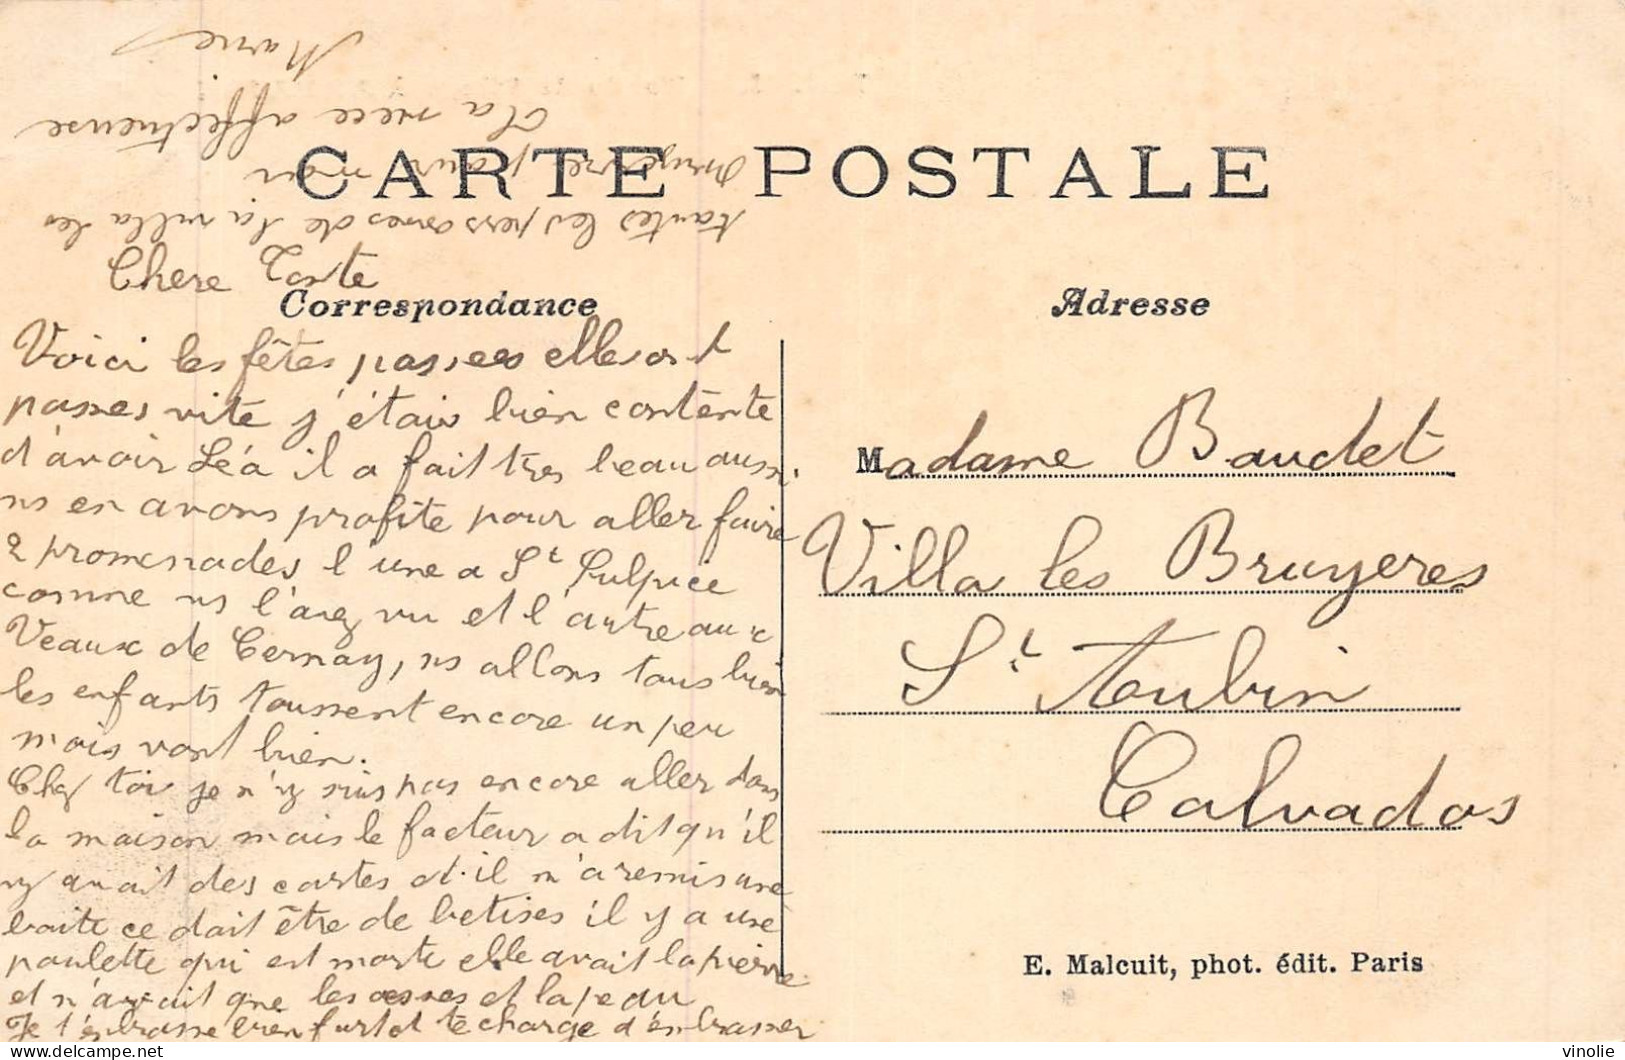 CARTE POSTALE
Correspondance
Adresse
Chere Tante
Voici les fêtes passees elle ont
passes vite j'étais bien contente
d'avoir Léa il a fait très beau aussi
ns en avons profite pour aller faire
2 promenades l'une a St Sulpice
comme ns l'avez vu et l'autre aux
Veaux de Cernay, ns allons tous bien
les enfants toussent encore un peu
mais vont bien.
Chez toi je n'y suis pas encore aller dans
la maison mais le facteur a dit qu'il
y avait des cartes et il m'a remis une
boite ce doit être de betises il y a une
poulette qui est morte elle avait la pierre
et n'avait que les osses et la peau
Je t'embrasse bien fort et te charge d'embrasser
toutes les personnes de la villa les
bruyere pour moi
Ta niece affectueuse
Marie
Madame Baudet
Villa les Bruyeres
St Aubin
Calvados
E. Malcuit, phot. édit. Paris
https://www.delcampe.net
vinolie